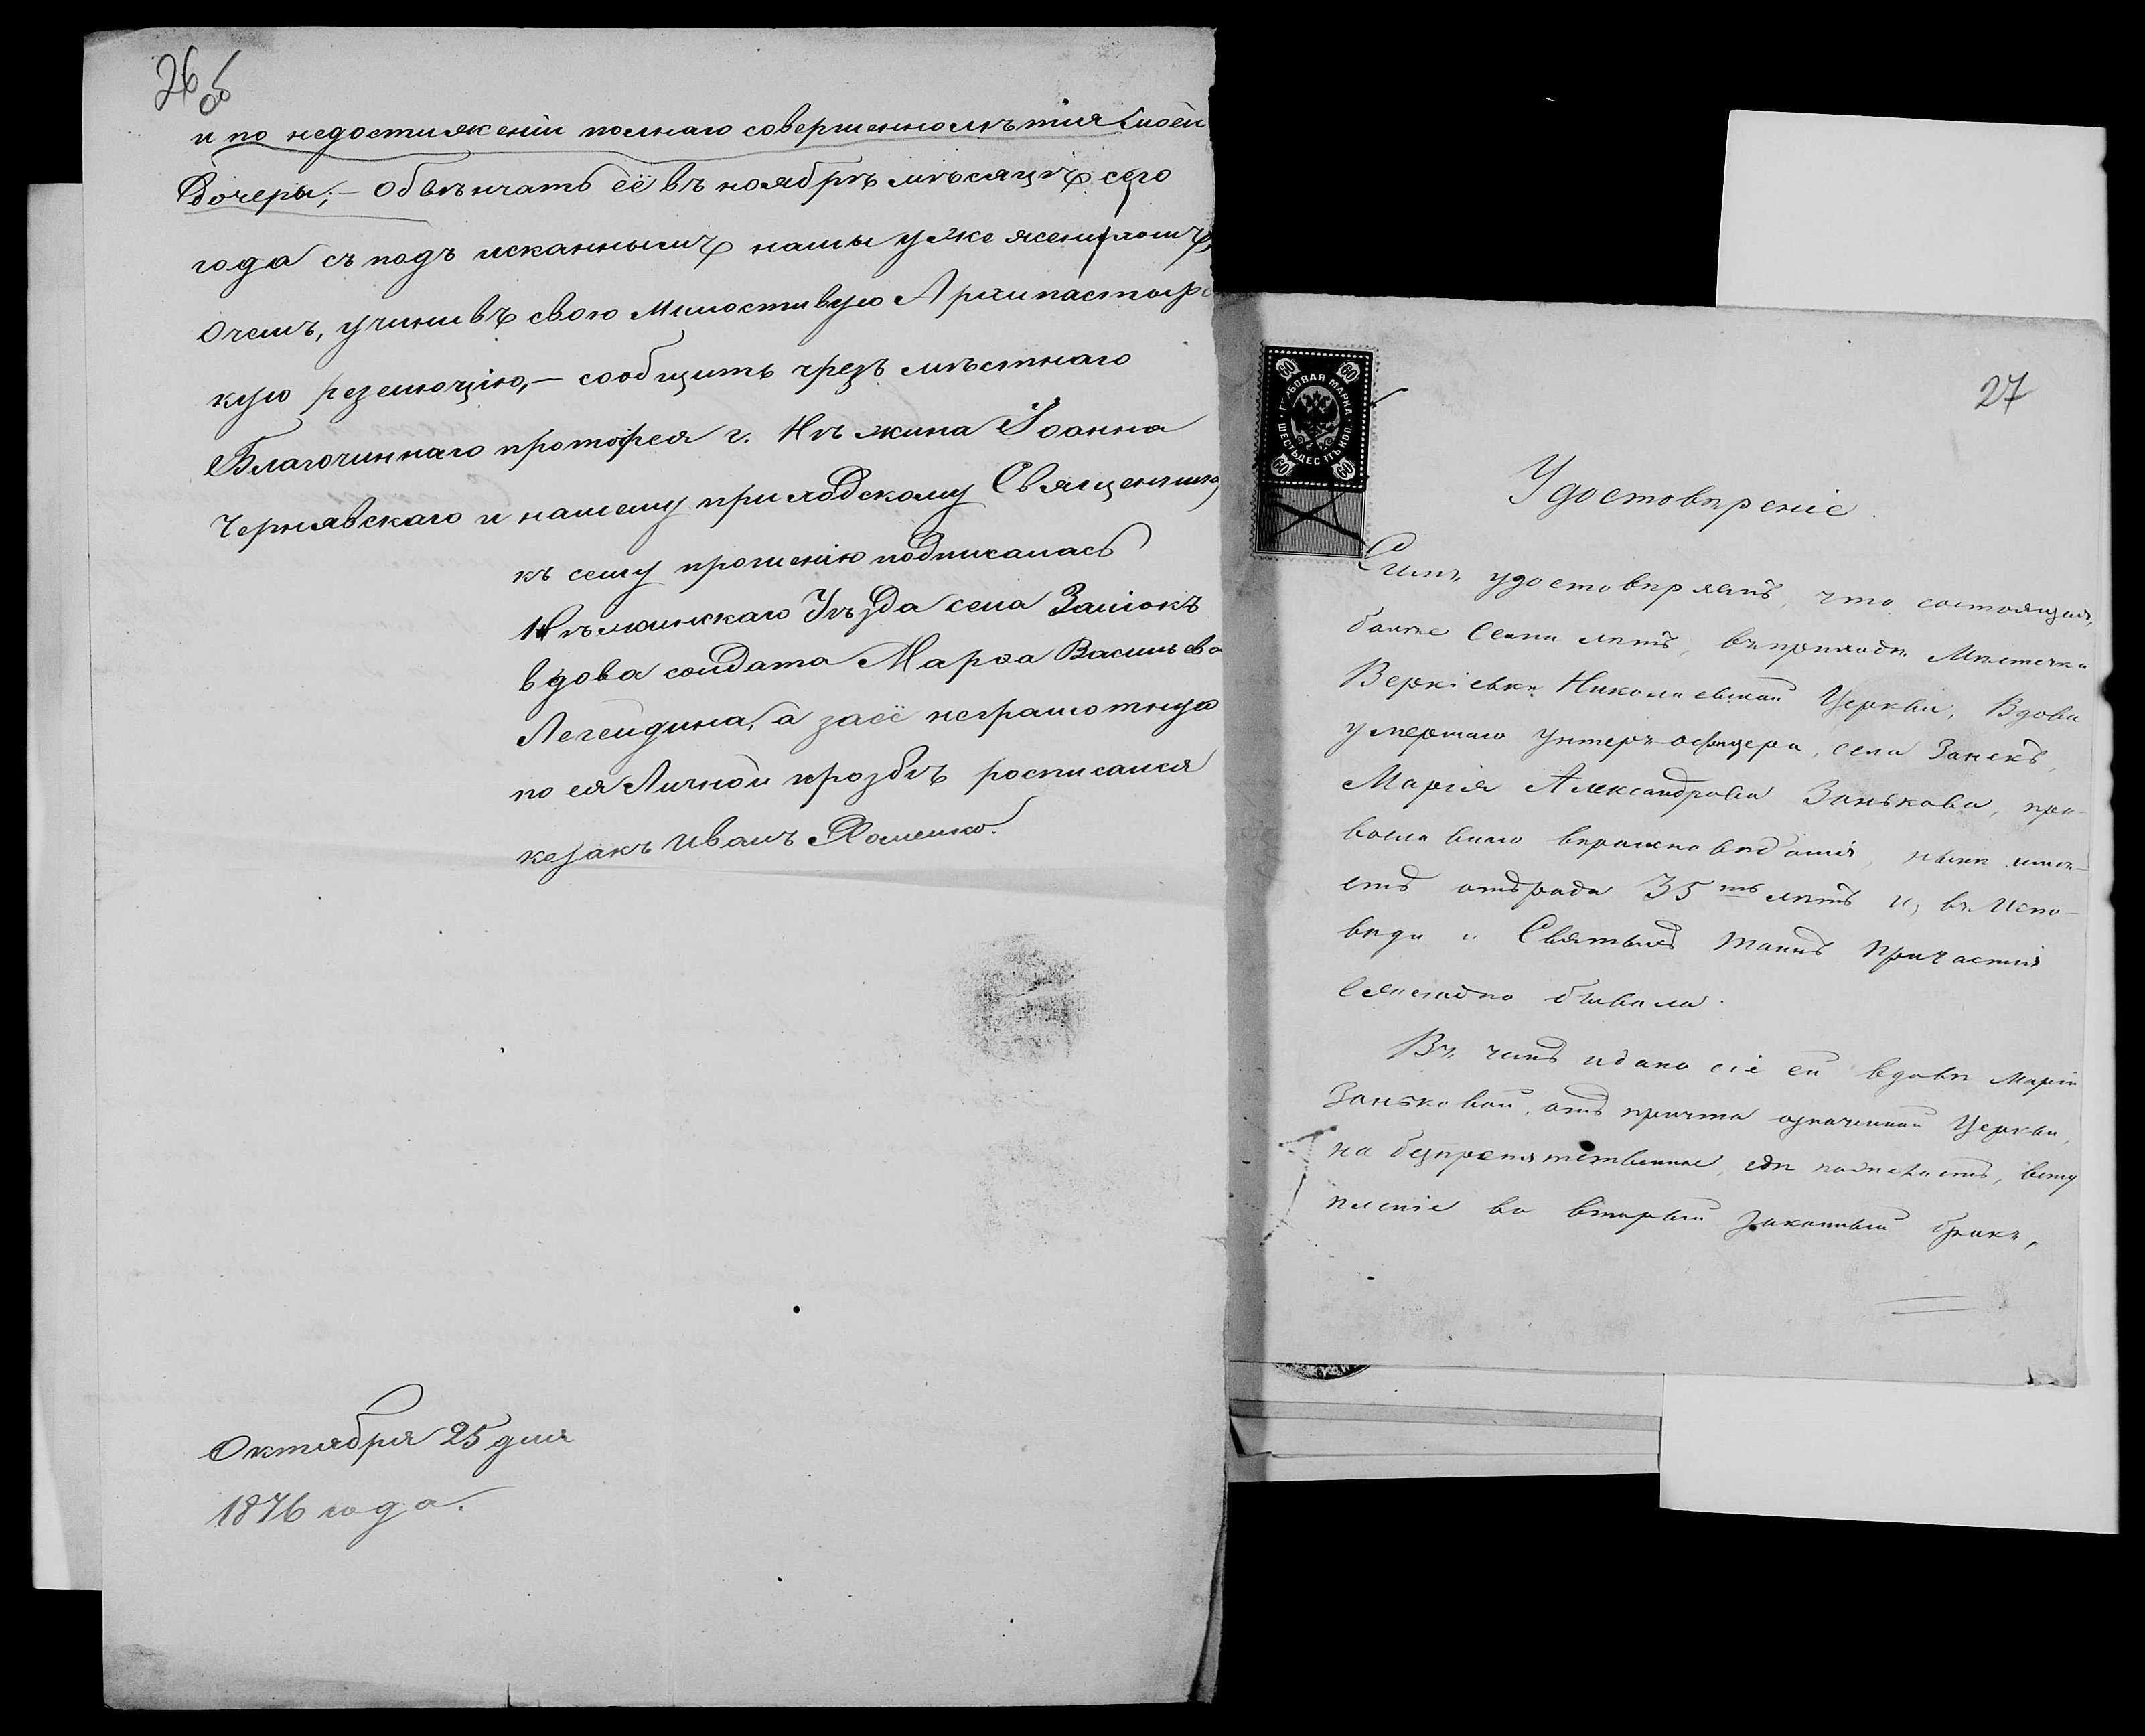 26 об
и по недостижении полнаго совершеннолѣтия моей
Дочеры; – Обвѣнчать её въ ноябрѣ мѣсяцѣ сего
года съ подъ исканнымъ намы уже женихомъ,
Очемъ, учинивъ свою Милостивую Архипастырс
кую резелюцію, – сообщить чрезъ мѣстнаго
Благочиннаго протоіерея г. Нѣжина Іоанна
Чернявскаго и нашему приходскому Священнику
къ сему прошенію подписалась
Нѣжинскаго Уѣзда села Заньокъ
вдова солдата Марѳа Васильева
Легейдина, а за её неграмотную
по ея Личной прозбѣ росписался
козакъ Иванъ Хоменко.
Октября 25 дня
1876 года.
27
ГЕРБОВАЯ МАРКА
ШЕСТЬДЕСЯТЪ КОП.
60 60 60 60
Удостовѣреніе.
Симъ удостовѣряемъ, что состоящая,
болѣе Семи лѣтъ, въ приходѣ Мѣстечка
Веркіевки Николаевской Церкви, Вдова
умершаго Унтеръ-офицера, села Занекъ,
Марія Александрова Занькова, пра-
вославнаго вѣроисповѣданія, нынѣ имѣ-
етъ отъ рода 35 ть лѣтъ и, въ Испо-
вѣди и Святыхъ Таинъ Причастія
ежегодно бывала.
Въ чемъ и дано сіе ей вдовѣ Маріи
Заньковой, отъ причта означенной Церкви,
на безпрепятственное, гдѣ пожелаетъ, всту
пленіе во вторый законный бракъ,